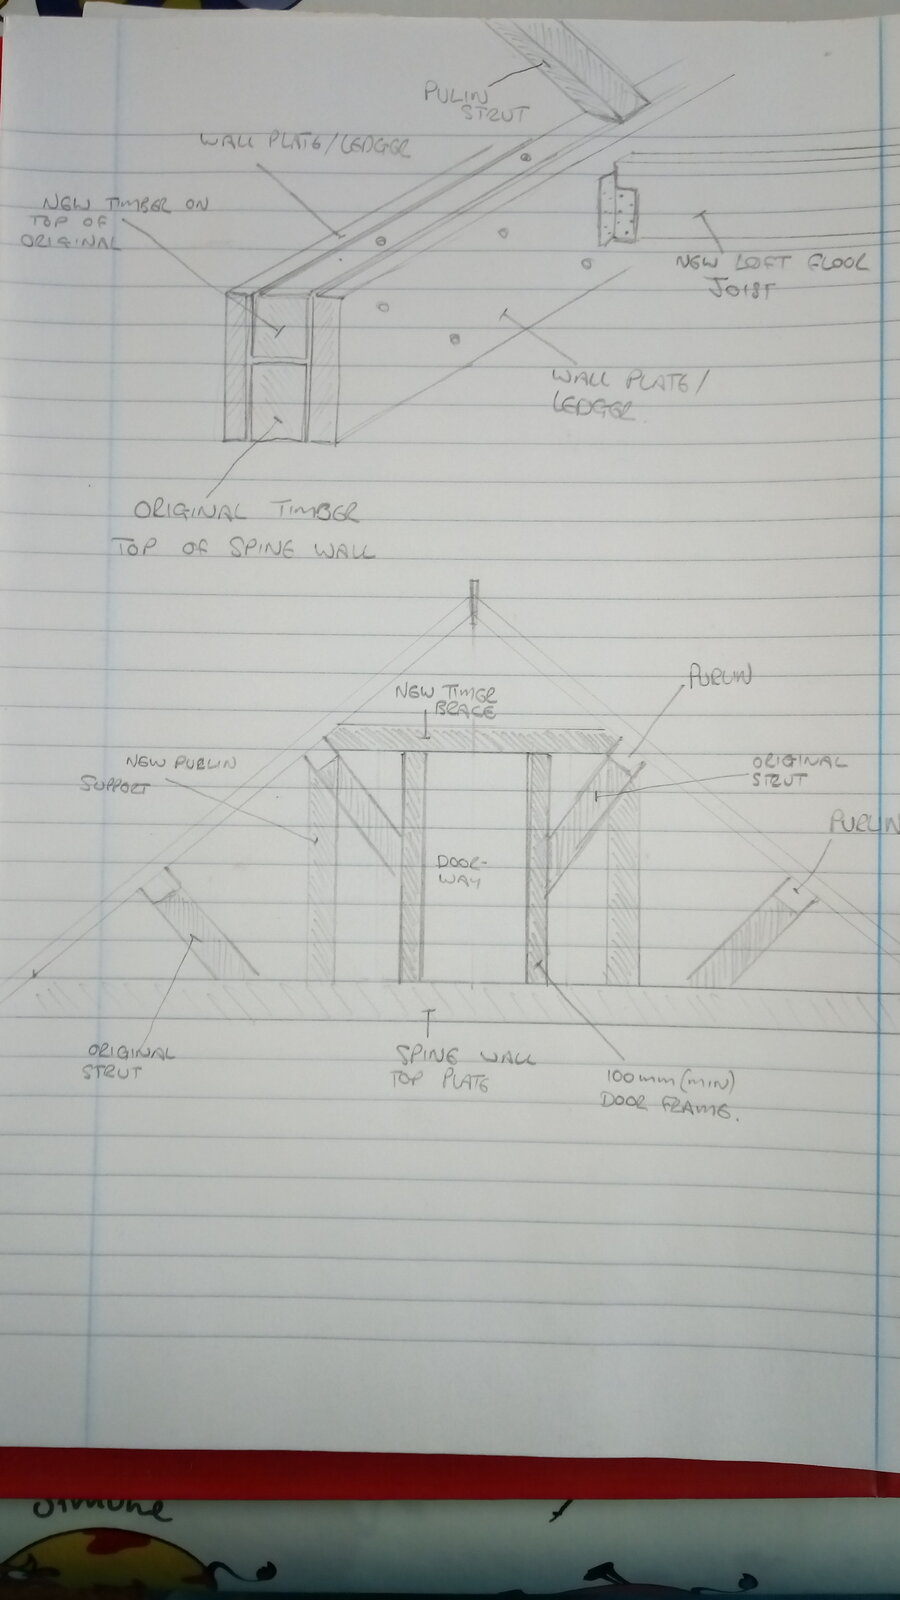 PULIN
STRUT
WALL PLATE/LEDGER
NEW TIMBER ON
TOP OF
ORIGINAL
NEW LOFT FLOOR
JOIST
WALL PLATE/
LEDGER
ORIGINAL TIMBER
TOP OF SPINE WALL
PURLIN
NEW TIMBER
BRACE
NEW PURLIN
SUPPORT
ORIGINAL
STRUT
PURLIN
DOOR-
WAY
ORIGINAL
STRUT
SPINE WALL
TOP PLATE
100mm (MIN)
DOOR FRAME.
Simone